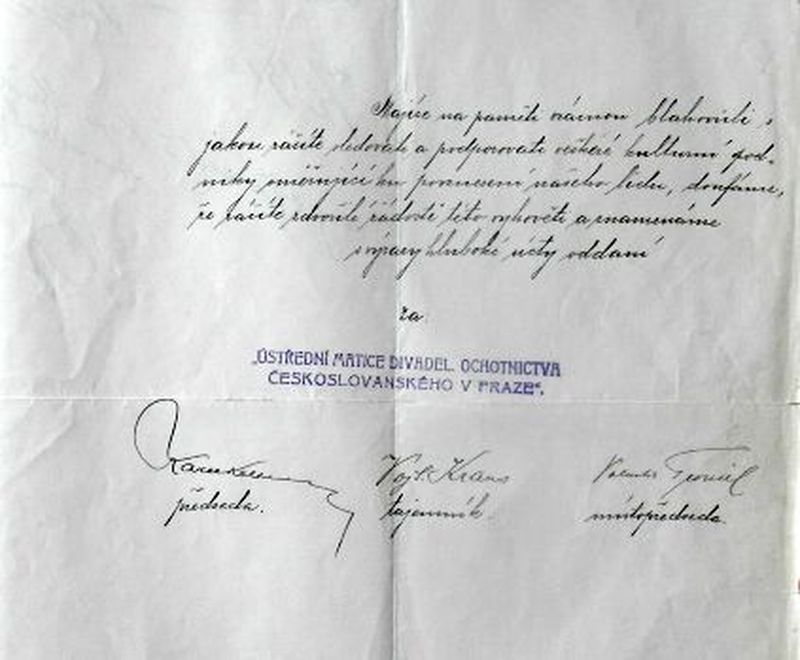 Majíce na paměti vzácnou blahovůli s
jakou ráčíte sledovati a podporovati veškeré kulturní pod-
niky směřující ku povznesení našeho lidu, doufáme,
že ráčíte zdvořilé žádosti této vyhověti a znamenáme
s výrazy hluboké úcty oddaní
za
„ÚSTŘEDNÍ MATICE DIVADEL. OCHOTNICTVA
ČESKOSLOVANSKÉHO V PRAZE“.
Vojt. Kraus
předseda. tajemník. místopředseda.